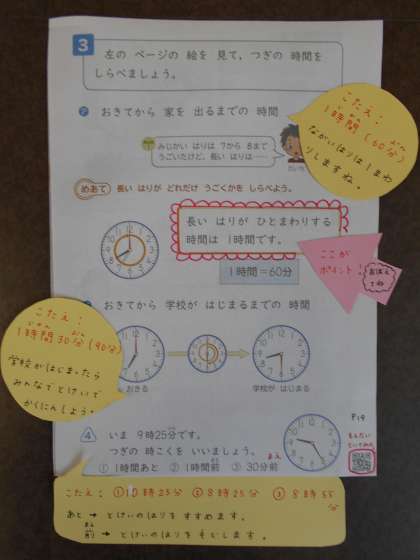 3
左の ページの 絵を 見て、つぎの 時間を
しらべましょう。
おきてから 家を 出るまでの 時間
みじかい はりは 7から 8まで
うごいたけど、長い はりは……
こたえ：
1時間（60分）
ながいはりは1まわ
りしますね。
めあて 長い はりが どれだけ うごくかを しらべよう。
長い はりが ひとまわりする
時間は 1時間です。
1時間＝60分
ここが
ポイント！
おぼえ
てね
おきてから 学校が はじまるまでの 時間
おきる
学校が はじまる
こたえ：
1時間30分（90分）
学校がはじまったら
みんなでとけいで
かくにんしよう。
4 いま 9時25分です。
つぎの 時こくを いいましょう。
① 1時間あと ② 1時間前 ③ 30分前
まえ
P19
こたえ： ①10時25分 ②8時25分 ③8時55分
あと → とけいのはりをすすめます。
前 → とけいのはりをもどします。
まえ